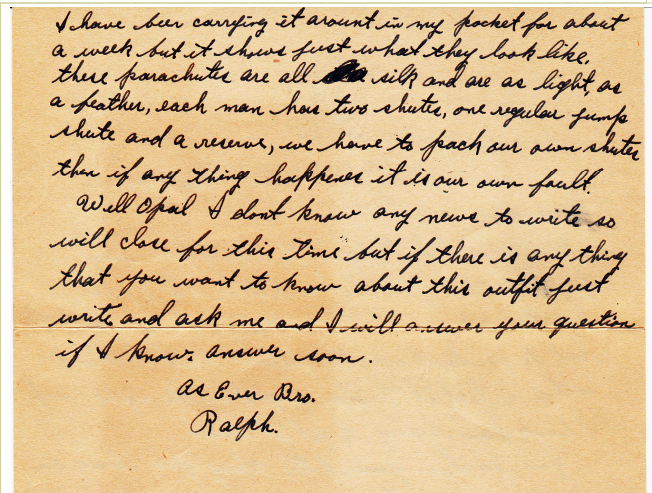 I have been carrying it around in my pocket for about
a week but it shows just what they look like,
these parachutes are all silk and are as light, as
a feather, each man has two shutes, one regular jump
shute and a reserve, we have to pack our own shutes
then if any thing happenes it is our own fault.
Well Opal I dont know any news to write so
will close for this time but if there is any thing
that you want to know about this outfit just
write and ask me and I will answer your question
if I know. answer soon.
As Ever Bro.
Ralph.